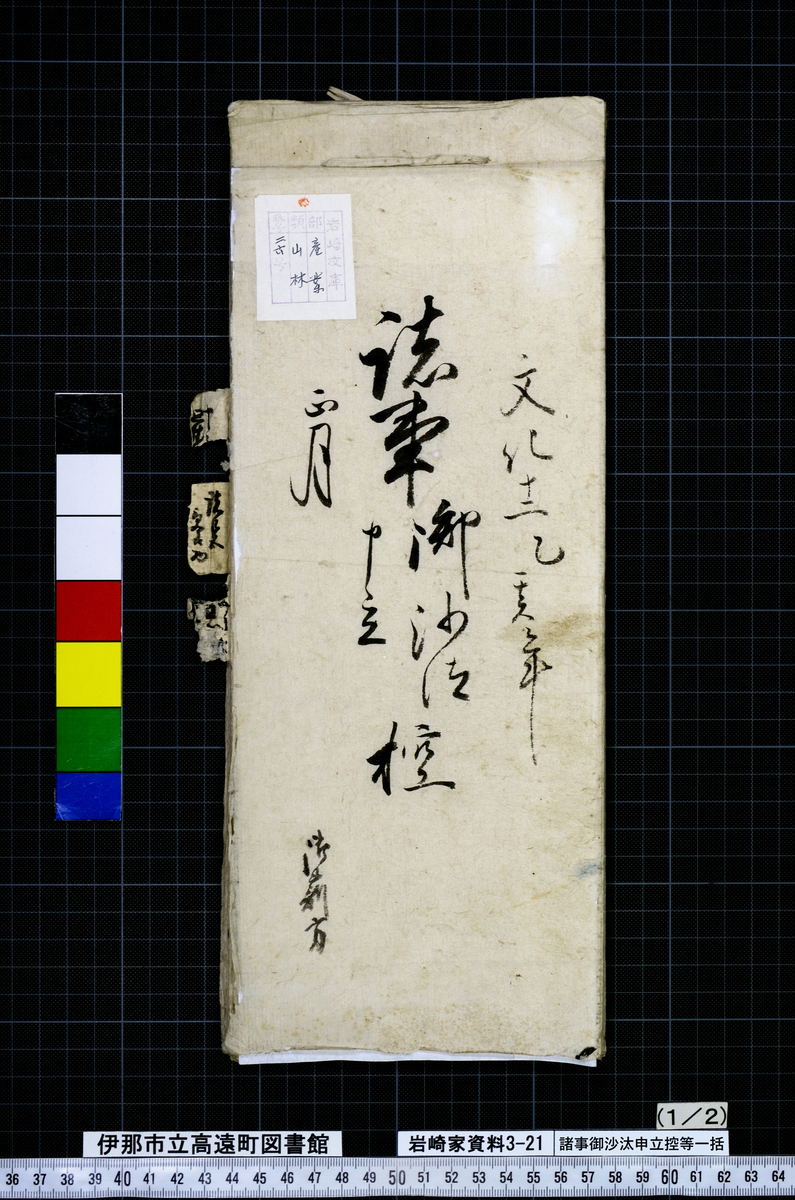 岩崎文庫
部 産業
類 山林
文化十二乙亥年
諸事御沙汰
申立
控
正月
御薪方
(1/2)
伊那市立高遠町図書館
岩崎家資料3-21
諸事御沙汰申立控等一括
36 37 38 39 40 41 42 43 44 45 46 47 48 49 50 51 52 53 54 55 56 57 58 59 60 61 62 63 64